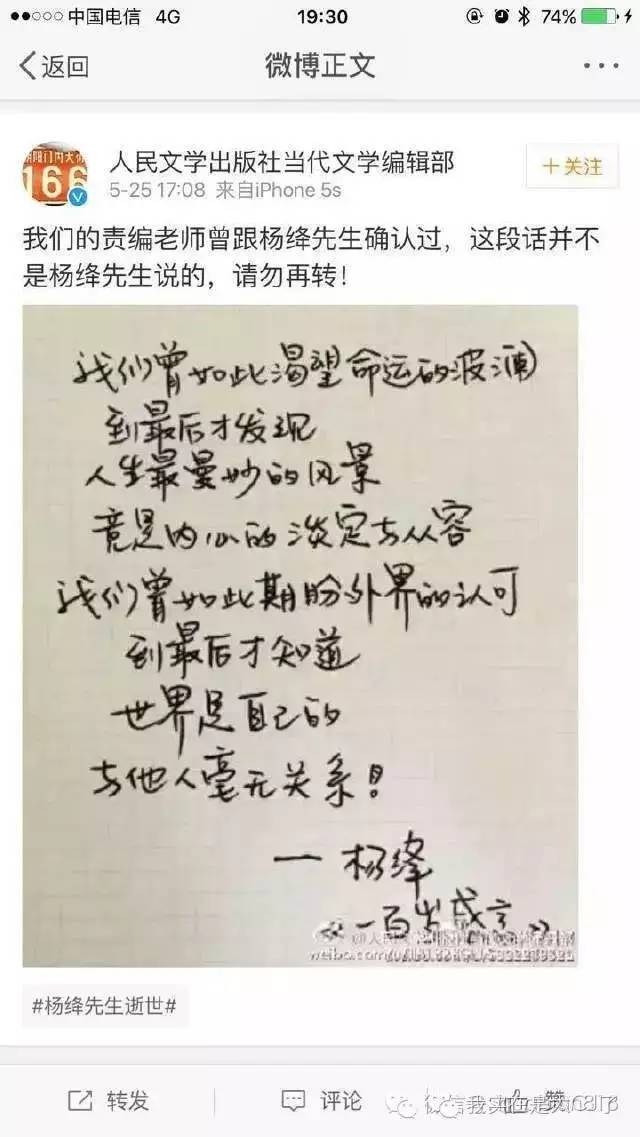 中国电信 4G 19:30 74%
返回 微博正文
朝阳门内大街
166
人民文学出版社当代文学编辑部 +关注
5-25 17:08 来自iPhone 5s
我们的责编老师曾跟杨绛先生确认过，这段话并不
是杨绛先生说的，请勿再转！
我们曾如此渴望命运的波澜
到最后才发现
人生最曼妙的风景
竟是内心的淡定与从容
我们曾如此期盼外界的认可
到最后才知道
世界是自己的
与他人毫无关系！
— 杨绛
《一百岁感言》
#杨绛先生逝世#
转发 评论 赞